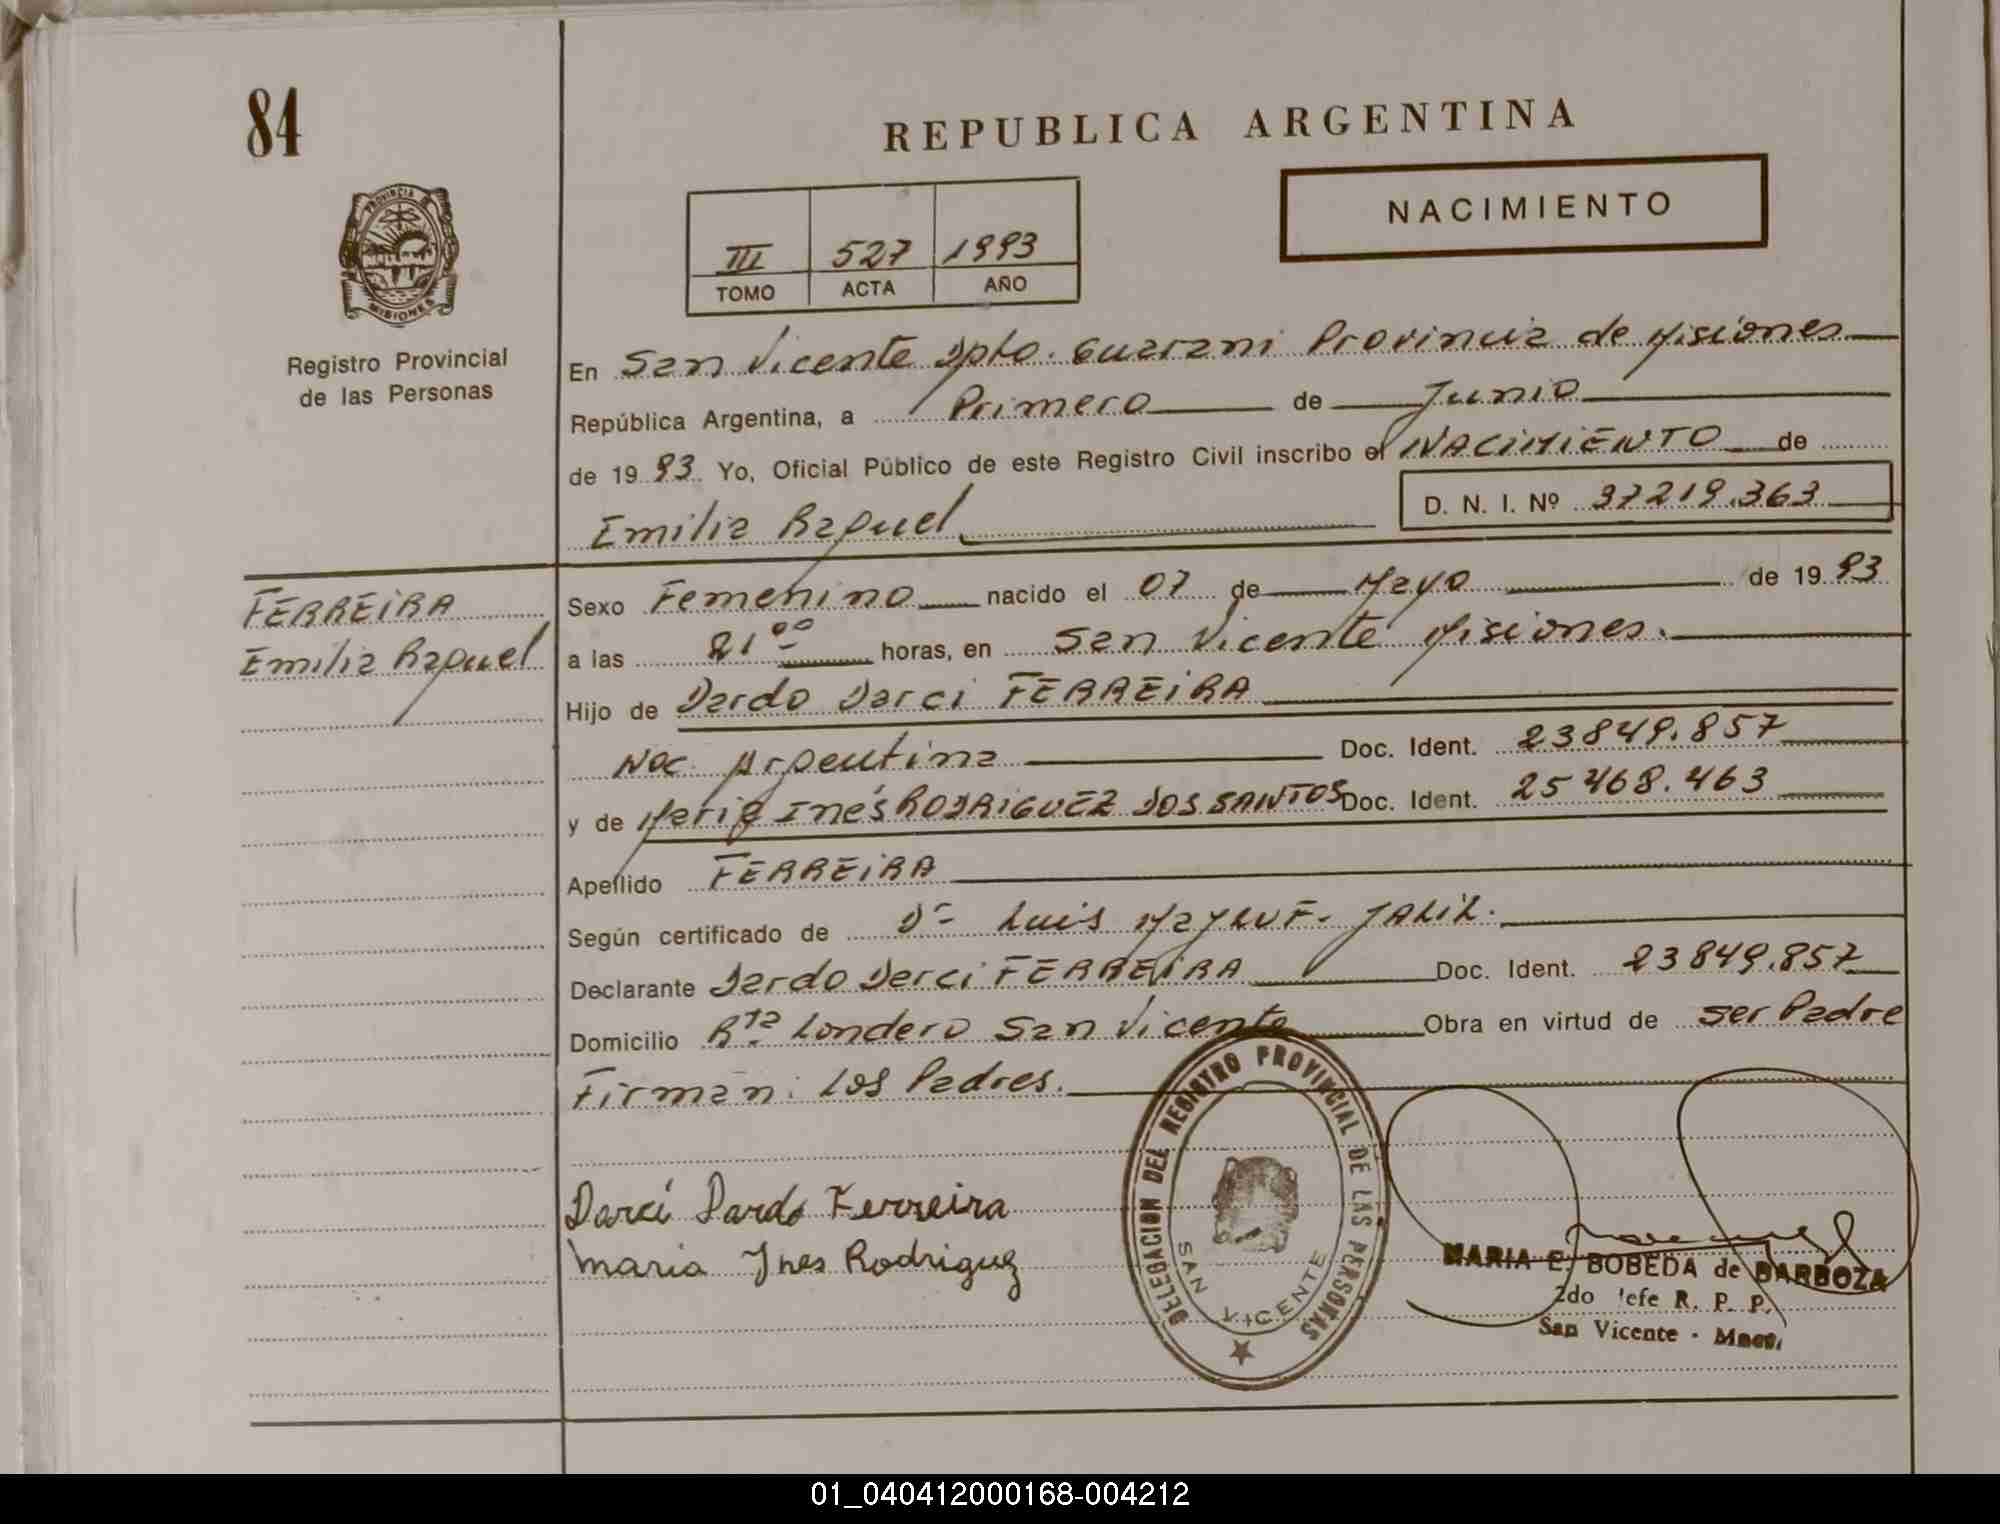 84
REPUBLICA ARGENTINA
NACIMIENTO
PROVINCIA
MISIONES
III 527 1993
TOMO ACTA AÑO
Registro Provincial
de las Personas
En San Vicente Dpto. Guarani Provincia de Misiones
República Argentina, a Primero de Junio
de 19 93 Yo, Oficial Público de este Registro Civil inscribo el NACIMIENTO de
Emilia Raquel D. N. I. Nº 37219.363
FERREIRA
Emilia Raquel
Sexo Femenino nacido el 07 de Mayo de 19 93
a las 21 00 horas, en San Vicente Misiones.
Hijo de Dardo Darci FERREIRA
Nac. Argentina Doc. Ident. 23849.857
y de Maria Inés RODRIGUEZ DOS SANTOS Doc. Ident. 25468.463
Apellido FERREIRA
Según certificado de Dr Luis JALIL.
Declarante Dardo Darci FERREIRA Doc. Ident. 23849.857
Domicilio Rta Londero San Vicente Obra en virtud de ser Padre
Firman: Los Padres.
Darci Dardo Ferreira
Maria Ines Rodriguez
DELEGACION DEL REGISTRO PROVINCIAL DE LAS PERSONAS
SAN VICENTE
MARIA E. BOBEDA de BARBOZA
2do Jefe R. P. P.
San Vicente - Mnes.
01_040412000168-004212